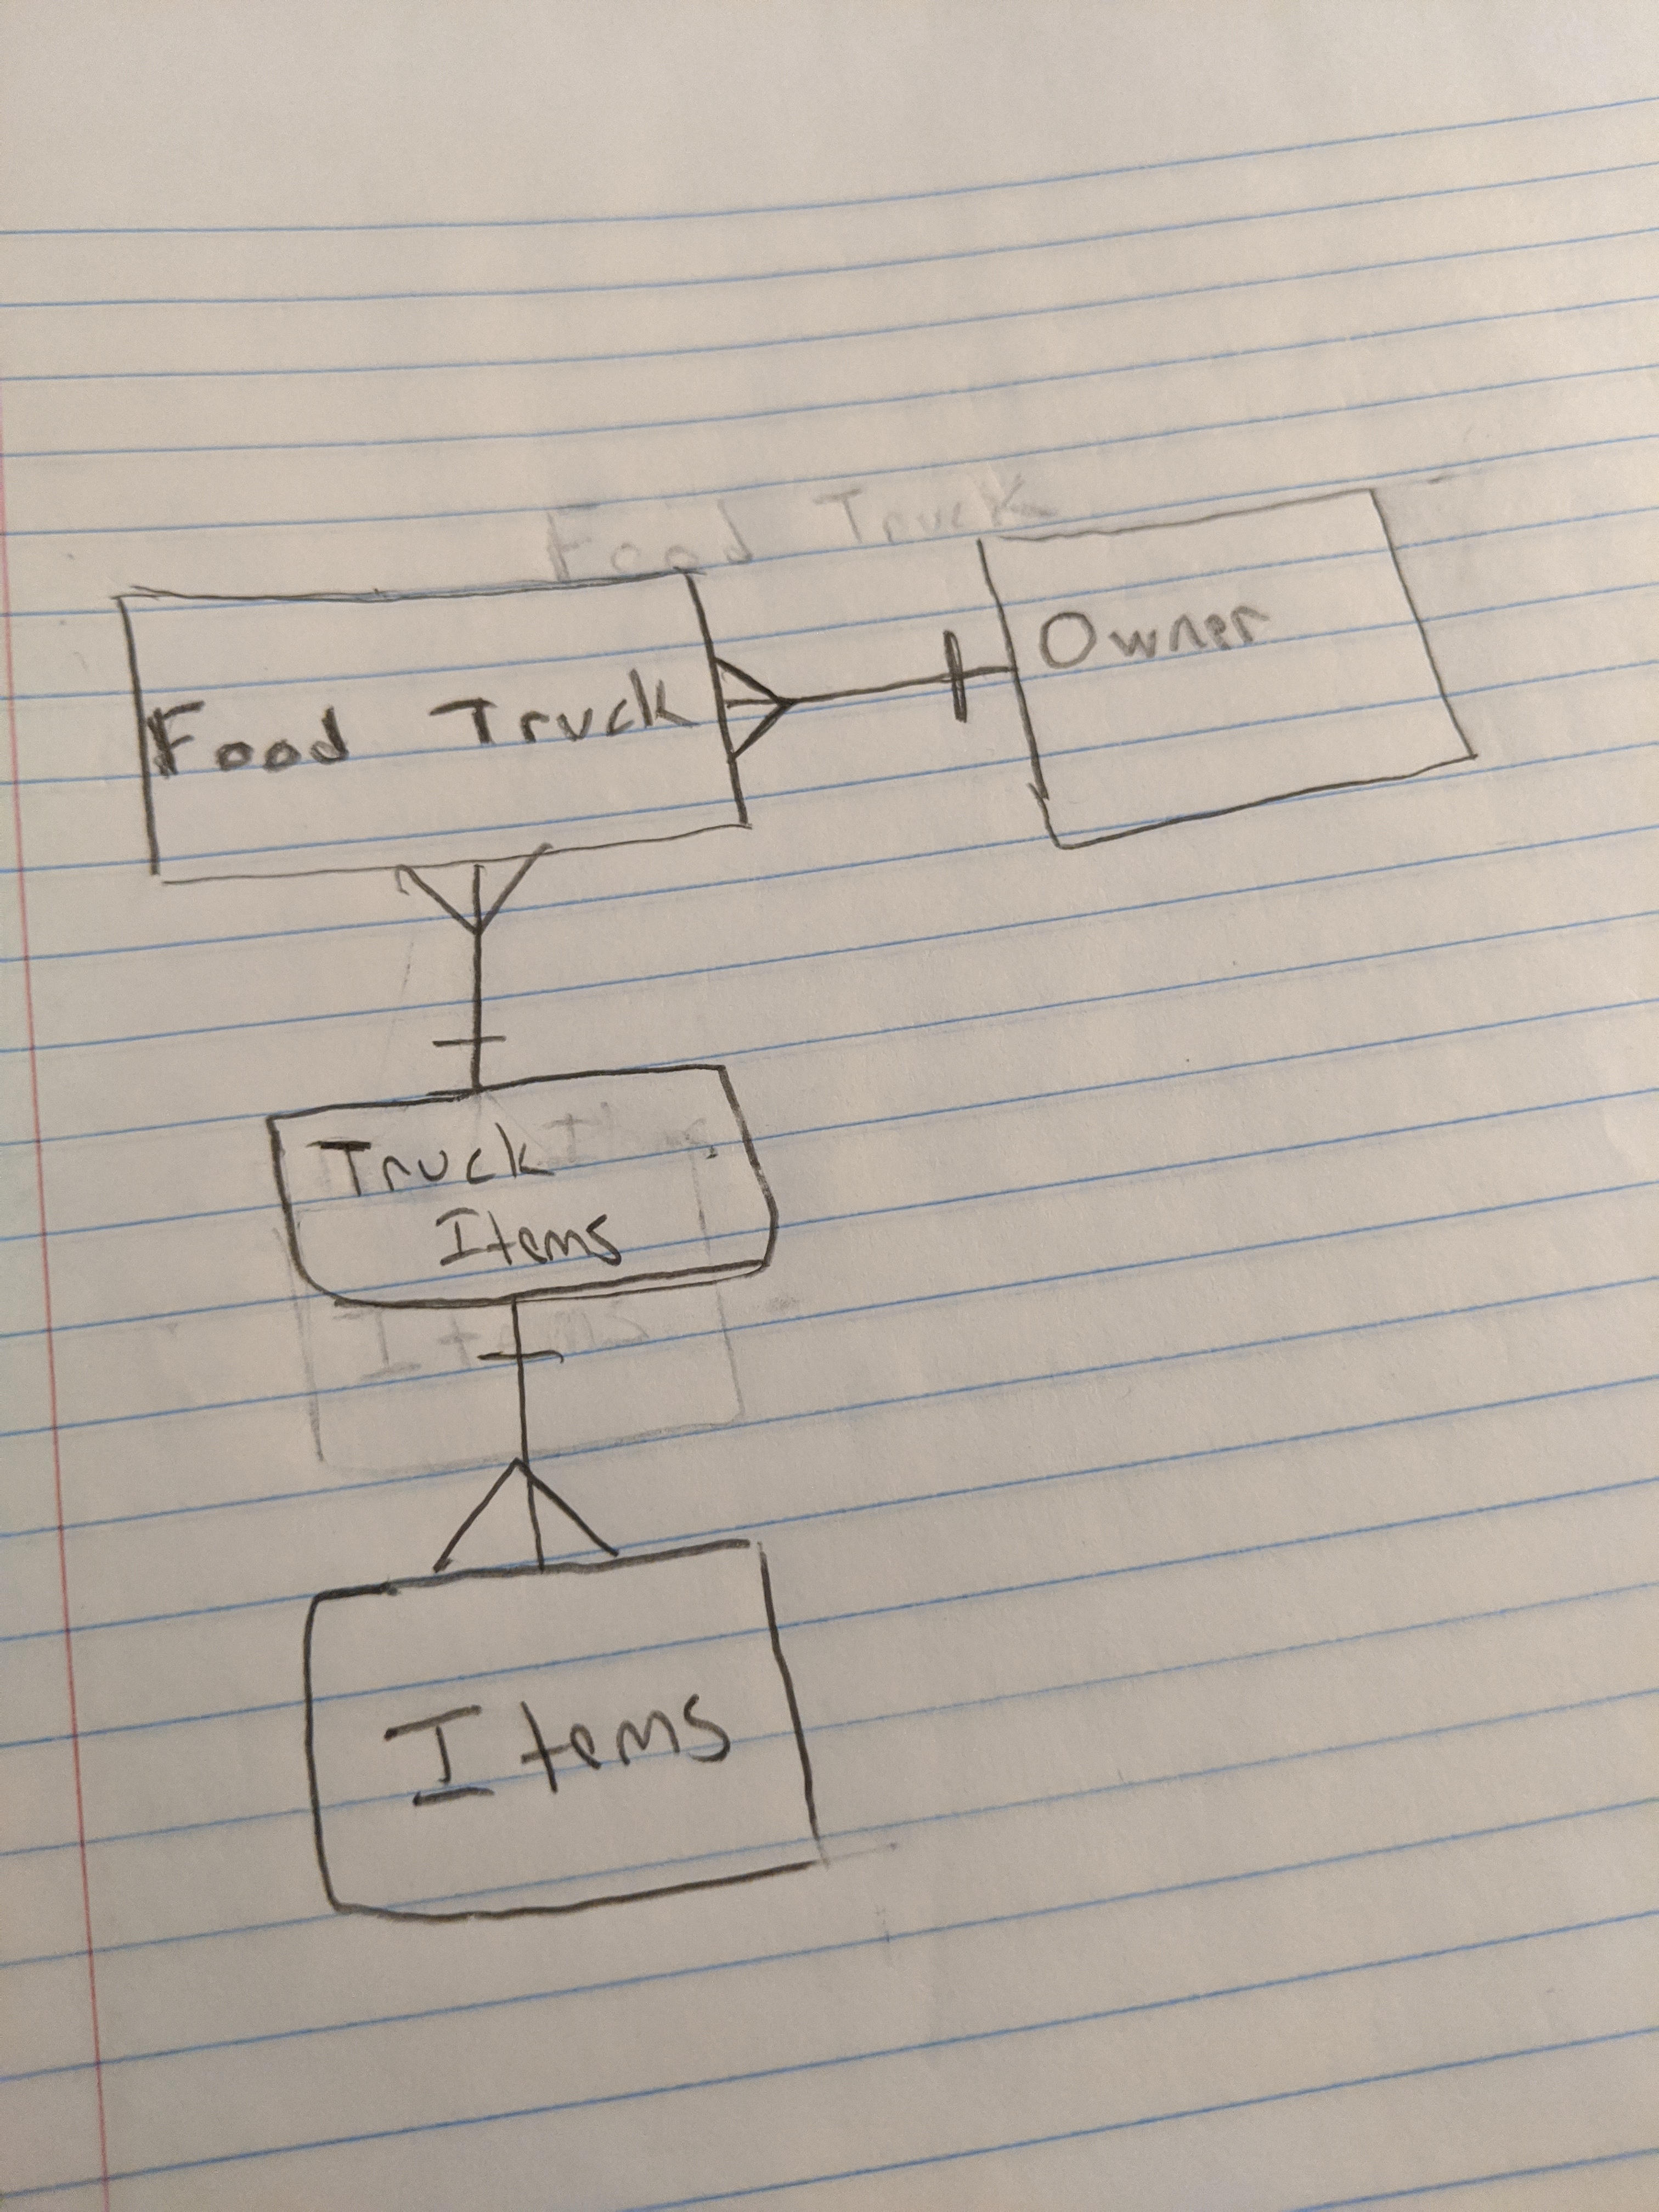 Food Truck
Food Truck
Owner
Truck
Items
Items
Items